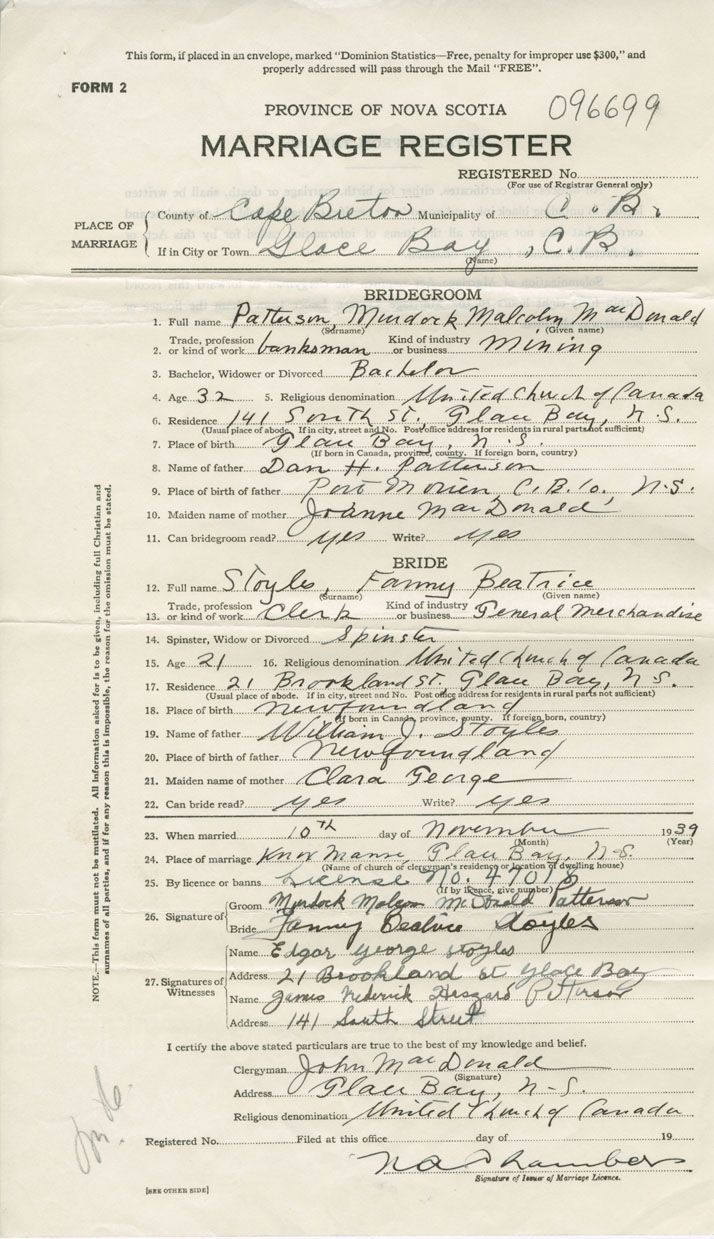 This form, if placed in an envelope, marked "Dominion Statistics—Free, penalty for improper use $300," and
properly addressed will pass through the Mail "FREE".
FORM 2
PROVINCE OF NOVA SCOTIA 096699
MARRIAGE REGISTER
REGISTERED No.
(For use of Registrar General only)
PLACE OF MARRIAGE
County of Cape Breton Municipality of C. B.
If in City or Town Glace Bay, C.B.
(Name)
BRIDEGROOM
1. Full name Patterson, Murdock Malcolm MacDonald
(Surname) (Given name)
2. Trade, profession or kind of work banksman Kind of industry or business Mining
3. Bachelor, Widower or Divorced Bachelor
4. Age 32 5. Religious denomination United Church of Canada
6. Residence 141 South St. Glace Bay, N.S.
(Usual place of abode. If in city, street and No. Post office address for residents in rural parts not sufficient)
7. Place of birth Glace Bay, N.S.
(If born in Canada, province, county. If foreign born, country)
8. Name of father Dan H. Patterson
9. Place of birth of father Port Morien, C.B. Co. N.S.
10. Maiden name of mother Joanne MacDonald
11. Can bridegroom read? yes Write? yes
BRIDE
12. Full name Stoyles, Fanny Beatrice
(Surname) (Given name)
13. Trade, profession or kind of work Clerk Kind of industry or business General Merchandise
14. Spinster, Widow or Divorced Spinster
15. Age 21 16. Religious denomination United Church of Canada
17. Residence 21 Brookland St. Glace Bay, N.S.
(Usual place of abode. If in city, street and No. Post office address for residents in rural parts not sufficient)
18. Place of birth Newfoundland
(If born in Canada, province, county. If foreign born, country)
19. Name of father William J. Stoyles
20. Place of birth of father Newfoundland
21. Maiden name of mother Clara George
22. Can bride read? yes Write? yes
23. When married 10th day of November 1939
(Month) (Year)
24. Place of marriage Knox Manse, Glace Bay, N.S.
(Name of church or clergyman's residence or location of dwelling house)
25. By licence or banns License No.
(If by licence, give number)
26. Signature of
Groom Murdock Malcom McDonald Patterson
Bride Fanny Beatrice Stoyles
27. Signatures of Witnesses
Name Edgar George Stoyles
Address 21 Brookland St Glace Bay
Name James Frederick Patterson
Address 141 South Street
I certify the above stated particulars are true to the best of my knowledge and belief.
Clergyman John MacDonald
(Signature)
Address Glace Bay, N-S.
Religious denomination United Church of Canada
Registered No. Filed at this office day of 19
Chambers
Signature of Issuer of Marriage Licence.
[SEE OTHER SIDE]
NOTE.—This form must not be mutilated. All Information asked for is to be given, including full Christian and
surnames of all parties, and if for any reason this is impossible, the reason for the omission must be stated.